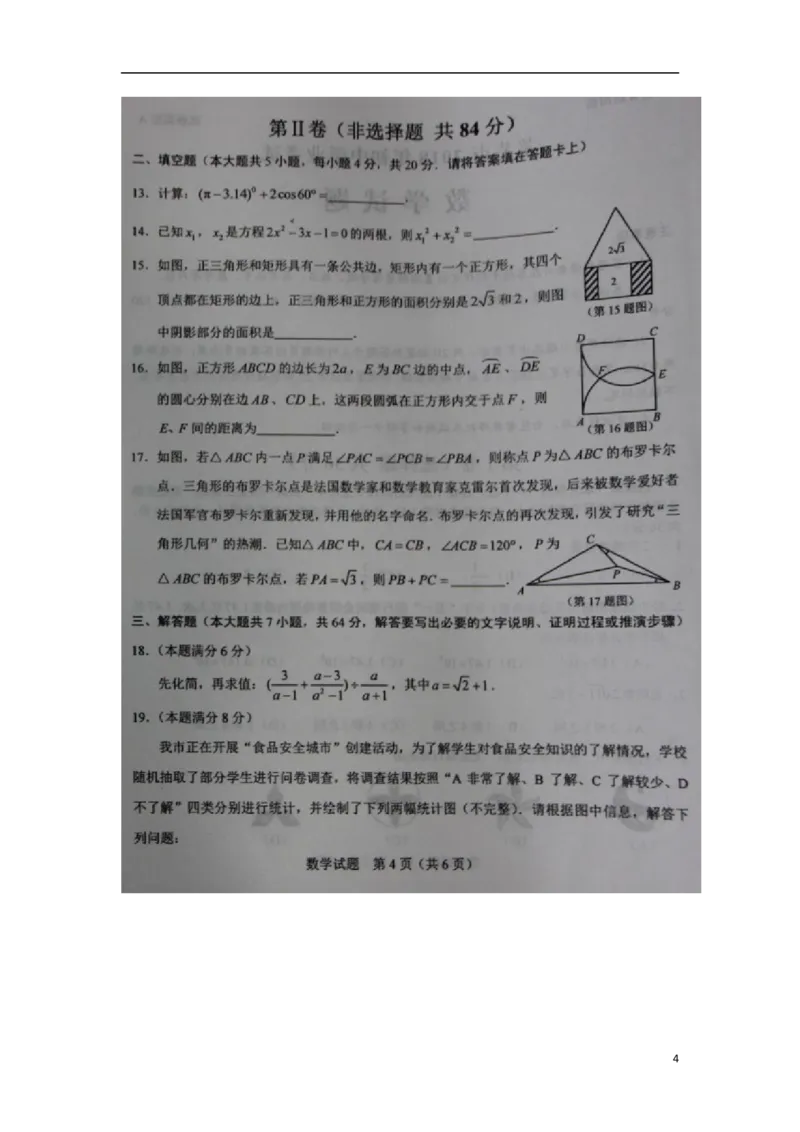 第Ⅱ卷（非选择题 共 84 分）
二、填空题（本大题共 5 小题，每小题 4 分，共 20 分．请将答案填在答题卡上）
13．计算：(π－3.14)⁰＋2cos60°＝__________．
14．已知x₁，x₂是方程2x²－3x－1＝0的两根，则x₁²＋x₂²＝__________．
15．如图，正三角形和矩形具有一条公共边，矩形内有一个正方形，其四个
顶点都在矩形的边上，正三角形和正方形的面积分别是2√3和2，则图
中阴影部分的面积是__________．
2√3
2
（第 15 题图）
16．如图，正方形ABCD的边长为2a，E为BC边的中点，⌒AE、⌒DE
的圆心分别在边AB、CD上，这两段圆弧在正方形内交于点F，则
E、F间的距离为__________．
D
C
F
E
A
B
（第 16 题图）
17．如图，若△ABC内一点P满足∠PAC＝∠PCB＝∠PBA，则称点P为△ABC的布罗卡尔
点，三角形的布罗卡尔点是法国数学家和数学教育家克雷尔首次发现，后来被数学爱好者
法国军官布罗卡尔重新发现，并用他的名字命名．布罗卡尔点的再次发现，引发了研究“三
角形几何”的热潮．已知△ABC中，CA＝CB，∠ACB＝120°，P为
△ABC的布罗卡尔点，若PA＝√3，则PB＋PC＝________．
C
P
A
B
（第 17 题图）
三、解答题（本大题共 7 小题，共 64 分，解答要写出必要的文字说明、证明过程或推演步骤）
18．（本题满分 6 分）
先化简，再求值：(3/(a－1)＋(a－3)/(a²－1))÷a/(a＋1)，其中a＝√2＋1．
19．（本题满分 8 分）
我市正在开展“食品安全城市”创建活动，为了解学生对食品安全知识的了解情况，学校
随机抽取了部分学生进行问卷调查，将调查结果按照“A 非常了解、B 了解、C 了解较少、D
不了解”四类分别进行统计，并绘制了下列两幅统计图（不完整）．请根据图中信息，解答下
列问题：
数学试题 第 4 页（共 6 页）
4